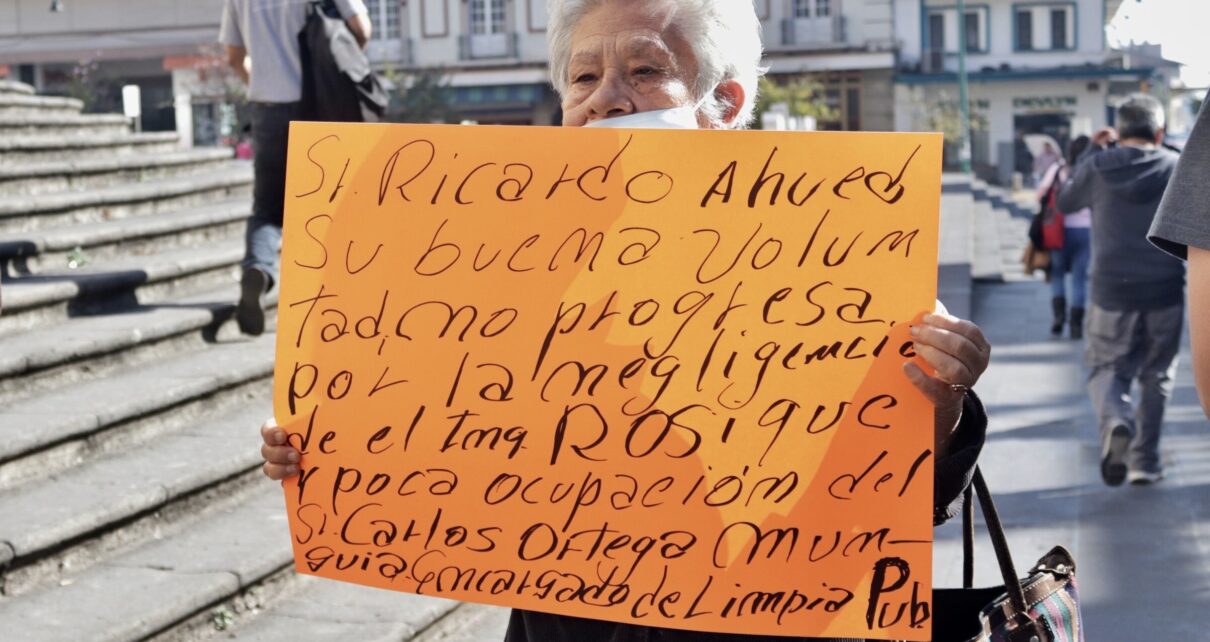 Sr. Ricardo Ahued
Su buena Volun
tad, no progresa.
por la negligencia
de el Ing. ROSique
y poca ocupación del
Sr. Carlos Ortega Mun-
guia-Encargado de Limpia Pub